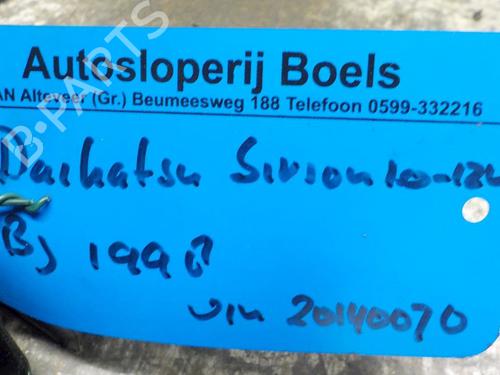 Autosloperij Boels
AN Alteveer (Gr.) Beumeesweg 188 Telefoon 0599-332216
B-PARTS
Daihatsu Sirion 10-12v
Bj 1998
vin 20140070